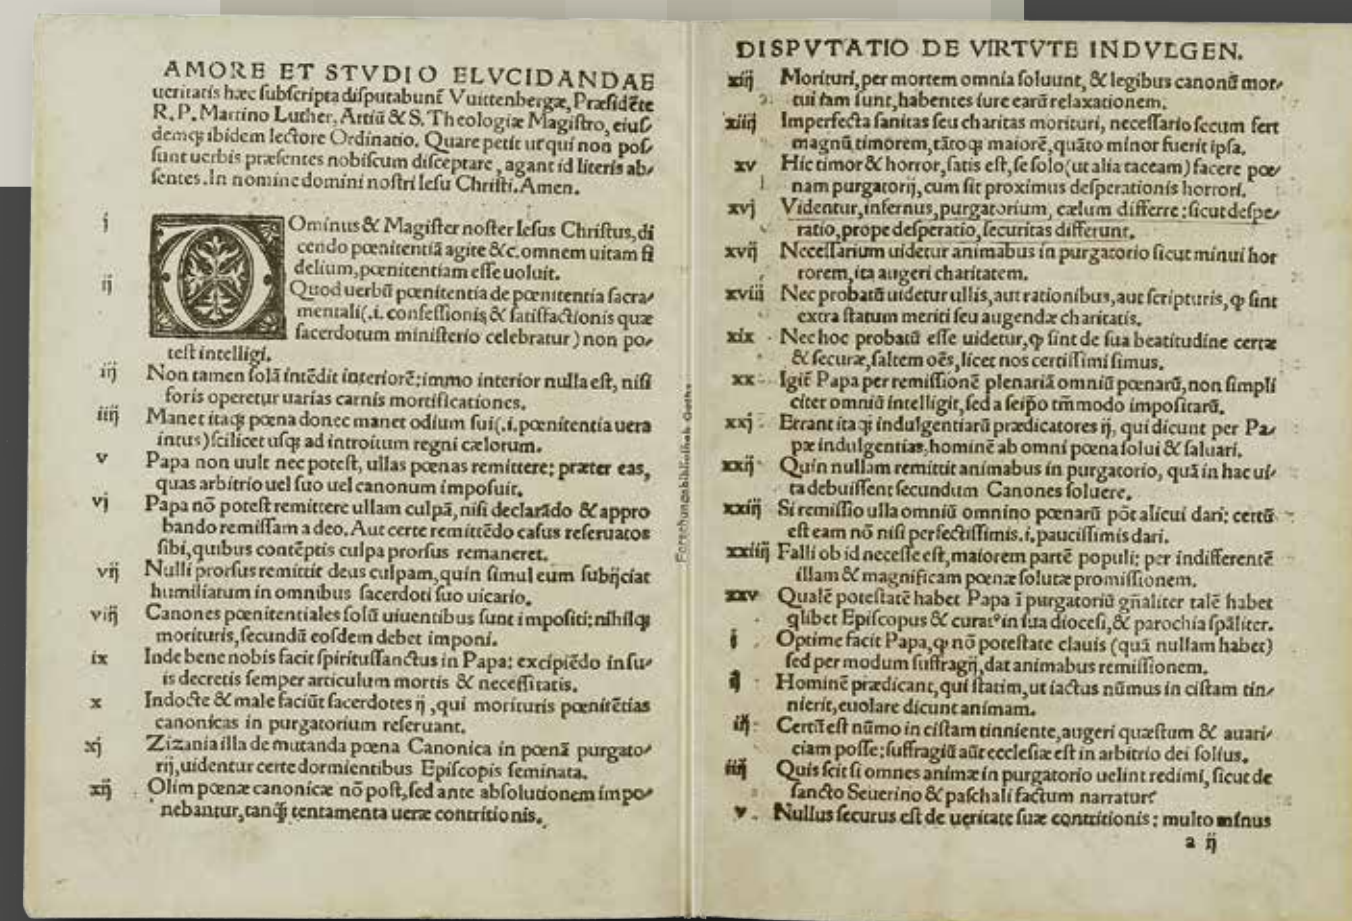 AMORE ET STVDIO ELVCIDANDAE
ueritatis hæc subscripta disputabunt̃ Vuittenbergæ, Præsidẽte
R.P. Martino Luther, Artiũ & S. Theologiæ Magistro, eius-
demq; ibidem lectore Ordinatio. Quare petit ut qui non pos-
sunt uerbis præsentes nobiscum disceptare, agant id literis ab-
sentes. In nomine domini nostri Iesu Christi. Amen.
i Ominus & Magister noster Iesus Christus, di
cendo pœnitentiã agite &c. omnem uitam fi
delium, pœnitentiam esse uoluit.
ij Quod uerbũ pœnitentia de pœnitentia sacra-
mentali(.i. confessionis & satisfactionis quæ
sacerdotum ministerio celebratur) non po-
test intelligi.
iij Non tamen solã intẽdit interiorẽ: immo interior nulla est, nisi
foris operetur uarias carnis mortificationes.
iiij Manet itaq; pœna donec manet odium sui(.i. pœnitentia uera
intus) scilicet usq; ad introitum regni cælorum.
v Papa non uult nec potest, ullas pœnas remittere: præter eas,
quas arbitrio uel suo uel canonum imposuit.
vj Papa nõ potest remittere ullam culpã, nisi declarãdo & appro
bando remissam a deo. Aut certe remittẽdo casus reseruatos
sibi, quibus contẽptis culpa prorsus remaneret.
vij Nulli prorsus remittit deus culpam, quin simul eum subijciat
humiliatum in omnibus sacerdoti suo uicario.
viij Canones pœnitentiales solũ uiuentibus sunt impositi: nihilq;
morituris, secundũ eosdem debet imponi.
ix Inde bene nobis facit spiritussanctus in Papa: excipiẽdo in su-
is decretis semper articulum mortis & necessitatis.
x Indocte & male faciũt sacerdotes ij, qui morituris pœnitẽtias
canonicas in purgatorium reseruant.
xj Zizania illa de mutanda pœna Canonica in pœnã purgato-
rij, uidentur certe dormientibus Episcopis seminata.
xij Olim pœnæ canonicæ nõ post, sed ante absolutionem impo-
nebantur, tanq̃ tentamenta ueræ contritionis.
Forschungsbibliothek Gotha
DISPVTATIO DE VIRTVTE INDVLGEN.
xiij Morituri, per mortem omnia soluunt, & legibus canonũ mor-
tui iam sunt, habentes iure earũ relaxationem.
xiiij Imperfecta sanitas seu charitas morituri, necessario secum fert
magnũ timorem, tãtoq; maiorẽ, quãto minor fuerit ipsa.
xv Hic timor & horror, satis est, se solo (ut alia taceam) facere pœ-
nam purgatorij, cum sit proximus desperationis horrori.
xvj Videntur, infernus, purgatorium, cælum differre: sicut despe-
ratio, prope desperatio, securitas differunt.
xvij Necessarium uidetur animabus in purgatorio sicut minui hor
rorem, ita augeri charitatem.
xviij Nec probatũ uidetur ullis, aut rationibus, aut scripturis, ꝙ sint
extra statum meriti seu augendæ charitatis.
xix Nec hoc probatũ esse uidetur, ꝙ sint de sua beatitudine certæ
& securæ, saltem oẽs, licet nos certissimi simus.
xx Igit̃ Papa per remissionẽ plenariã omniũ pœnarũ, non simpli
citer omniũ intelligit, sed a seip̃o tm̃modo impositarũ.
xxj Errant itaq; indulgentiarũ prædicatores ij, qui dicunt per Pa-
pæ indulgentias, hominẽ ab omni pœna solui & saluari.
xxij Quin nullam remittit animabus in purgatorio, quã in hac ui-
ta debuissent secundum Canones soluere.
xxiij Si remissio ulla omniũ omnino pœnarũ põt alicui dari: certũ
est eam nõ nisi perfectissimis .i. paucissimis dari.
xxiiij Falli ob id necesse est, maiorem partẽ populi: per indifferentẽ
illam & magnificam pœnæ solutæ promissionem.
xxv Qualẽ potestatẽ habet Papa ĩ purgatoriũ gñaliter talẽ habet
q̃libet Episcopus & curatꝰ in sua diocesi, & parochia sp̃aliter.
i Optime facit Papa, ꝙ nõ potestate clauis (quã nullam habet)
sed per modum suffragij, dat animabus remissionem.
ij Hominẽ prædicant, qui statim, ut iactus nũmus in cistam tin-
nierit, euolare dicunt animam.
iij Certũ est nũmo in cistam tinniente, augeri quæstum & auari-
ciam posse: suffragiũ aũt ecclesiæ est in arbitrio dei solius.
iiij Quis scit si omnes animæ in purgatorio uelint redimi, sicut de
sancto Seuerino & paschali factum narratur?
v Nullus securus est de ueritate suæ contritionis: multo minus
a ij